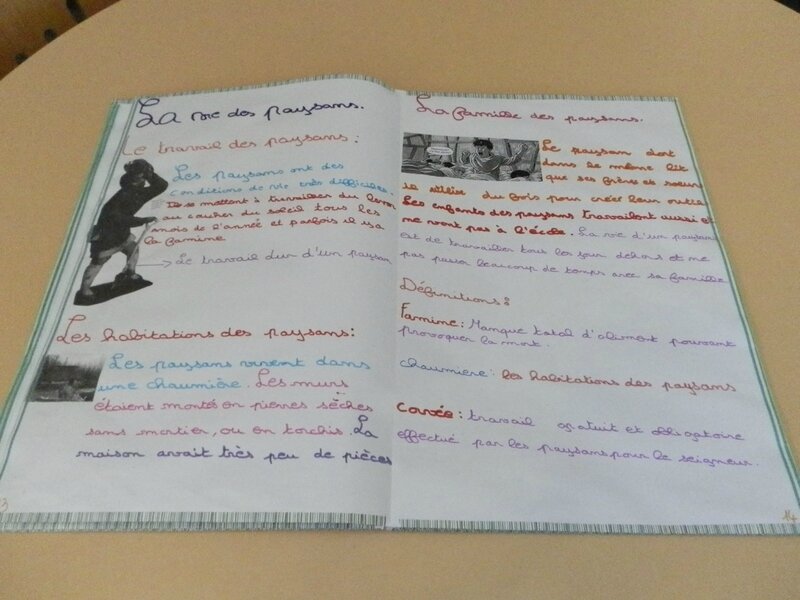 La vie des paysans.
Le travail des paysans :
Les paysans ont des
conditions de vie très difficiles.
Ils se mettent à travailler du lever
au coucher du soleil tous les
mois de l'année et parfois il y a
la famine
Le travail dur d'un paysan
Les habitations des paysans:
Les paysans vivent dans
une chaumière. Les murs
étaient montés en pierres sèches
sans mortier, ou en torchis. La
maison avait très peu de pièces
13
La famille des paysans.
Le paysan dort
dans le même lit
que ses frères et soeurs
il utilise du bois pour créer leur outils
Les enfants des paysans travaillent aussi et
ne vont pas à l'école. La vie d'un paysan
est de travailler tous les jour dehors et ne
pas passer beaucoup de temps avec sa famille
Définitions :
Famine : Manque total d'aliment pouvant
provoquer la mort.
chaumière : les habitations des paysans
Corvée : travail gratuit et obligatoire
effectué par les paysans pour le seigneur.
14